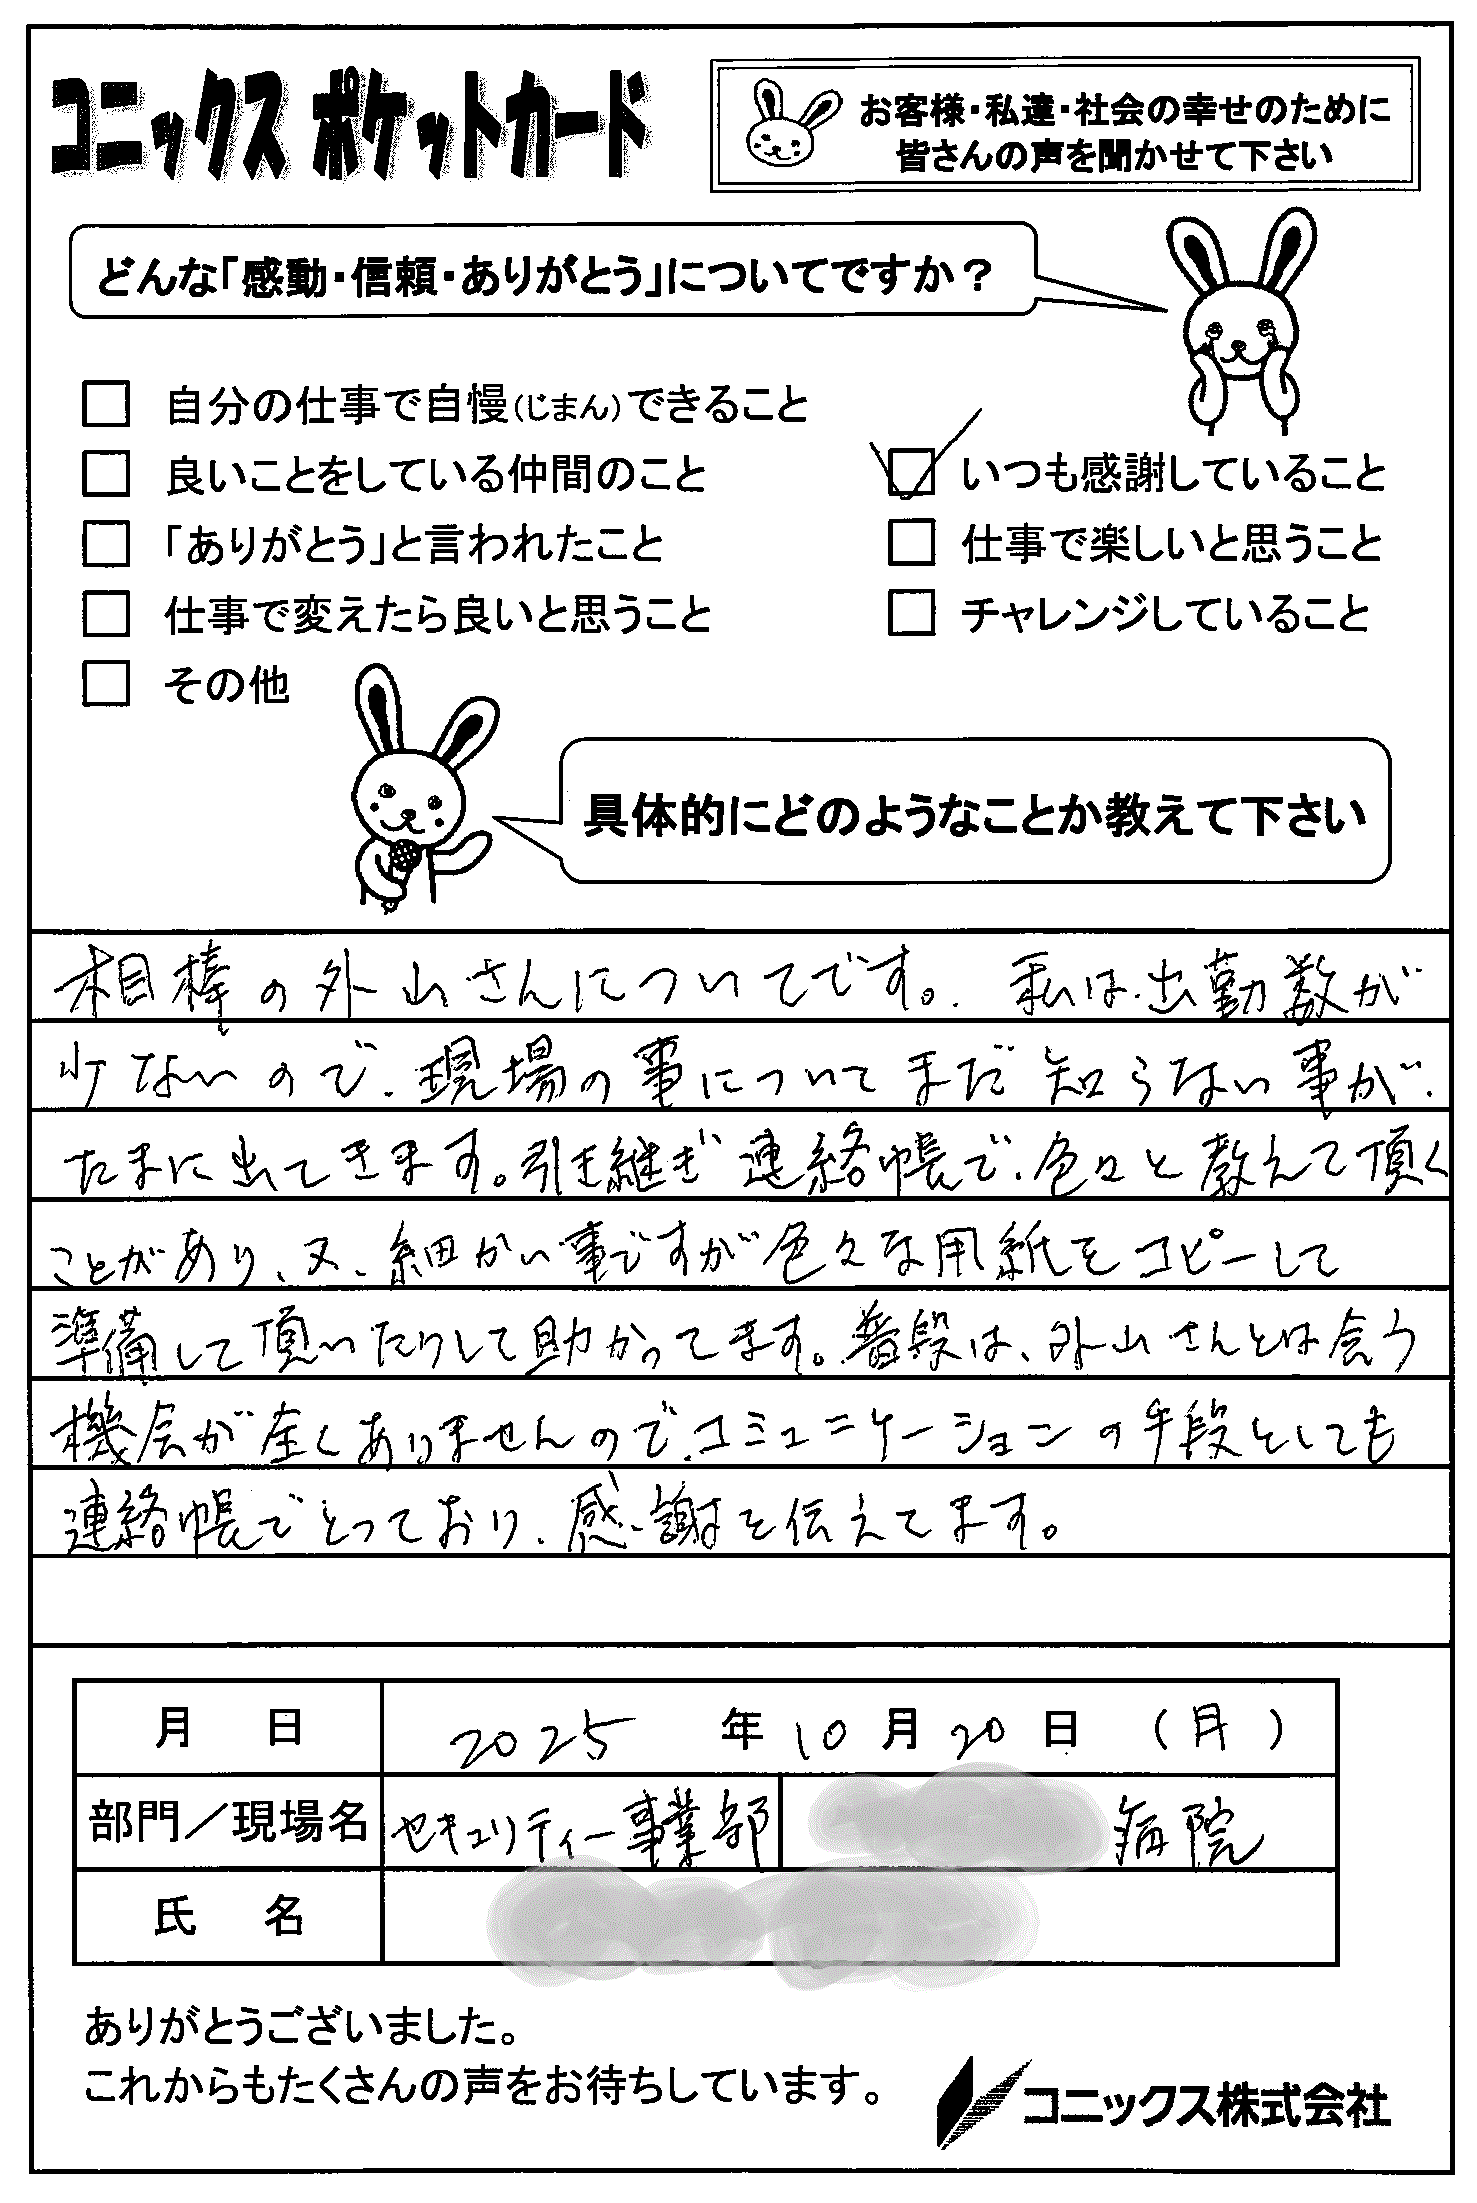 コニックス ポケットカード
お客様・私達・社会の幸せのために
皆さんの声を聞かせて下さい
どんな「感動・信頼・ありがとう」についてですか？
自分の仕事で自慢(じまん)できること
良いことをしている仲間のこと
いつも感謝していること
「ありがとう」と言われたこと
仕事で楽しいと思うこと
仕事で変えたら良いと思うこと
チャレンジしていること
その他
具体的にどのようなことか教えて下さい
相棒の外山さんについてです。私は出勤数が
少ないので、現場の事についてまだ知らない事が、
たまに出てきます。引き継ぎ連絡帳で、色々と教えて頂く
ことがあり、又、細かい事ですが色々な用紙をコピーして
準備して頂いたりして助かってます。普段は、外山さんとは会う
機会が全くありませんので、コミュニケーションの手段としても
連絡帳でとっており、感謝を伝えてます。
月 日 2025 年 10 月 20 日 (月)
部門／現場名 セキュリティー事業部 病院
氏 名
ありがとうございました。
これからもたくさんの声をお待ちしています。
コニックス株式会社